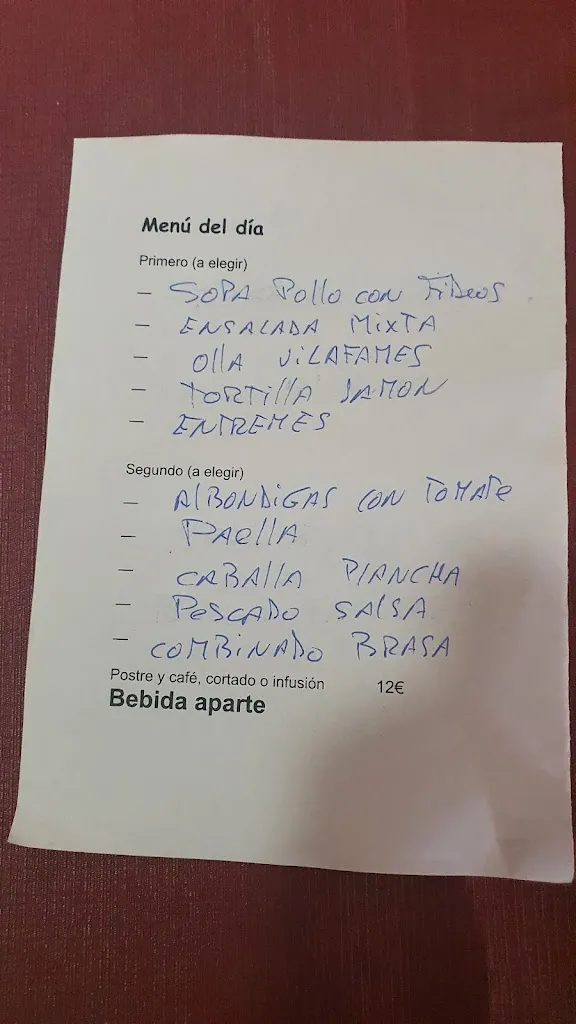 Menú del día
Primero (a elegir)
- SOPA Pollo con FiDeos
- ENSALADA MiXTA
- Olla ViLAFAMES
- TORTillA JAMON
- ENTREMES
Segundo (a elegir)
- AlBONDiGAS CON TOMATe
- PAellA
- CABAllA PlANCHA
- PesCADO SALSA
- COMBiNADO BRASA
Postre y café, cortado o infusión 12€
Bebida aparte